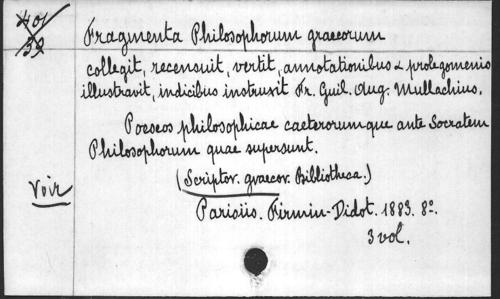 401
39
Fragmenta Philosophorum graecorum
collegit, recensuit, vertit, annotationibus & prolegomenis
illustravit, indicibus instruxit Fr. Guil. Aug. Mullachius.
Poeseos philosophicae caeterorumque ante Socratem
Philosophorum quae supersunt.
Voir
(Scriptor. graecor. Bibliotheca.)
Parisiis. Firmin-Didot. 1883. 8º.
3 vol.